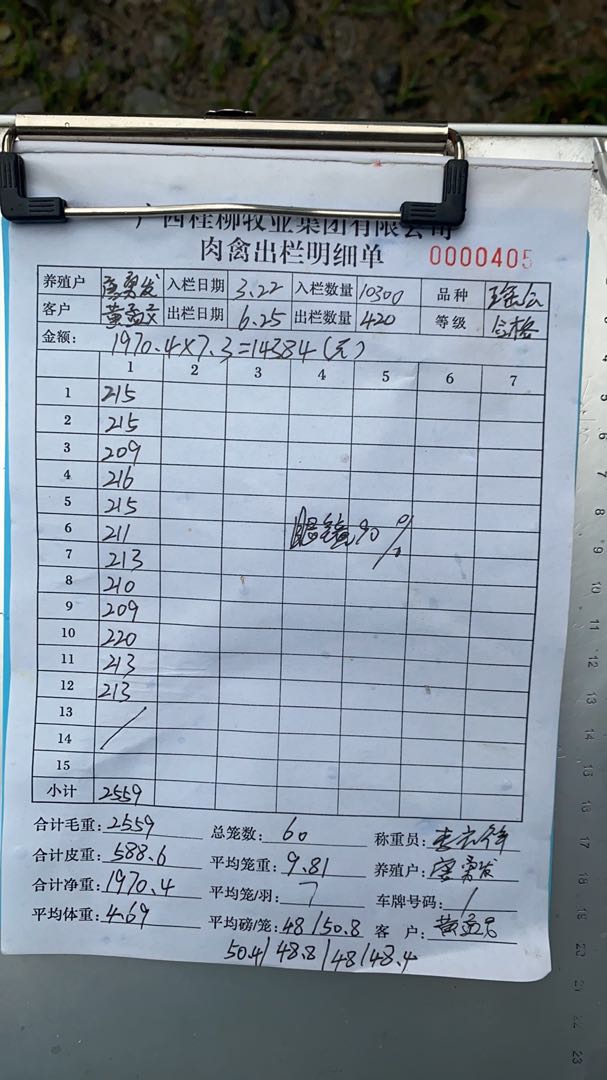 广西桂柳牧业集团有限公司
肉禽出栏明细单 0000405
养殖户 入栏日期 3.22 入栏数量 10300 品种
客户 黄孟 出栏日期 6.25 出栏数量 420 等级 合格
金额: 1970.4×7.3=14384(元)
1 2 3 4 5 6 7
1 215
2 215
3 209
4 216
5 215
6 211 眼镜90%
7 213
8 210
9 209
10 220
11 213
12 213
13 /
14
15
小计 2559
合计毛重: 2559 总笼数: 60 称重员:
合计皮重: 588.6 平均笼重: 9.81 养殖户:
合计净重: 1970.4 平均笼/羽: 7 车牌号码: /
平均体重: 4.69 平均磅/笼: 48/50.8 客 户: 黄孟
50.4/48.8/48/48.4